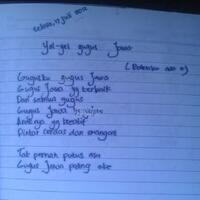 Selasa, 17 Juli 2012
Yel-yel gugus Jawa
Gugusku gugus Jawa
Gugus Jawa yg terbaik
Dari semua gugus
Gugus Jawa
yg kreatif
Pintar cerdas dan
Tak pernah putus asa
Gugus Jawa paling oke